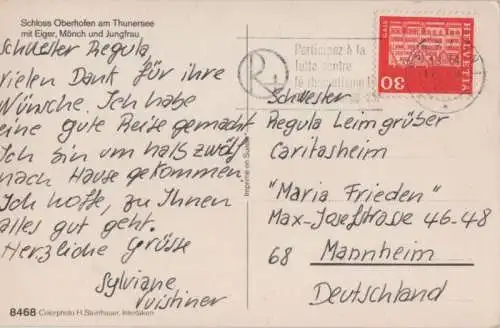 Schloss Oberhofen am Thunersee
mit Eiger, Mönch und Jungfrau
Schwester Regula,
vielen Dank für ihre
Wünsche. Ich habe
eine gute Reise gemacht
Ich bin um halb zwölf
nach Hause gekommen.
Ich hoffe, zu Ihnen
alles gut geht.
Herzliche Grüsse
Sylviane
Vuistiner
8468 Colorphoto H. Steinhauer, Interlaken
Imprimé en Suisse
Participez à la
lutte contre
le rhumatisme
R
HELVETIA
GAIS
30
Schwester
Regula Leimgrüber
Caritasheim
"Maria Frieden"
Max-Josefstrasse 46-48
68 Mannheim
Deutschland